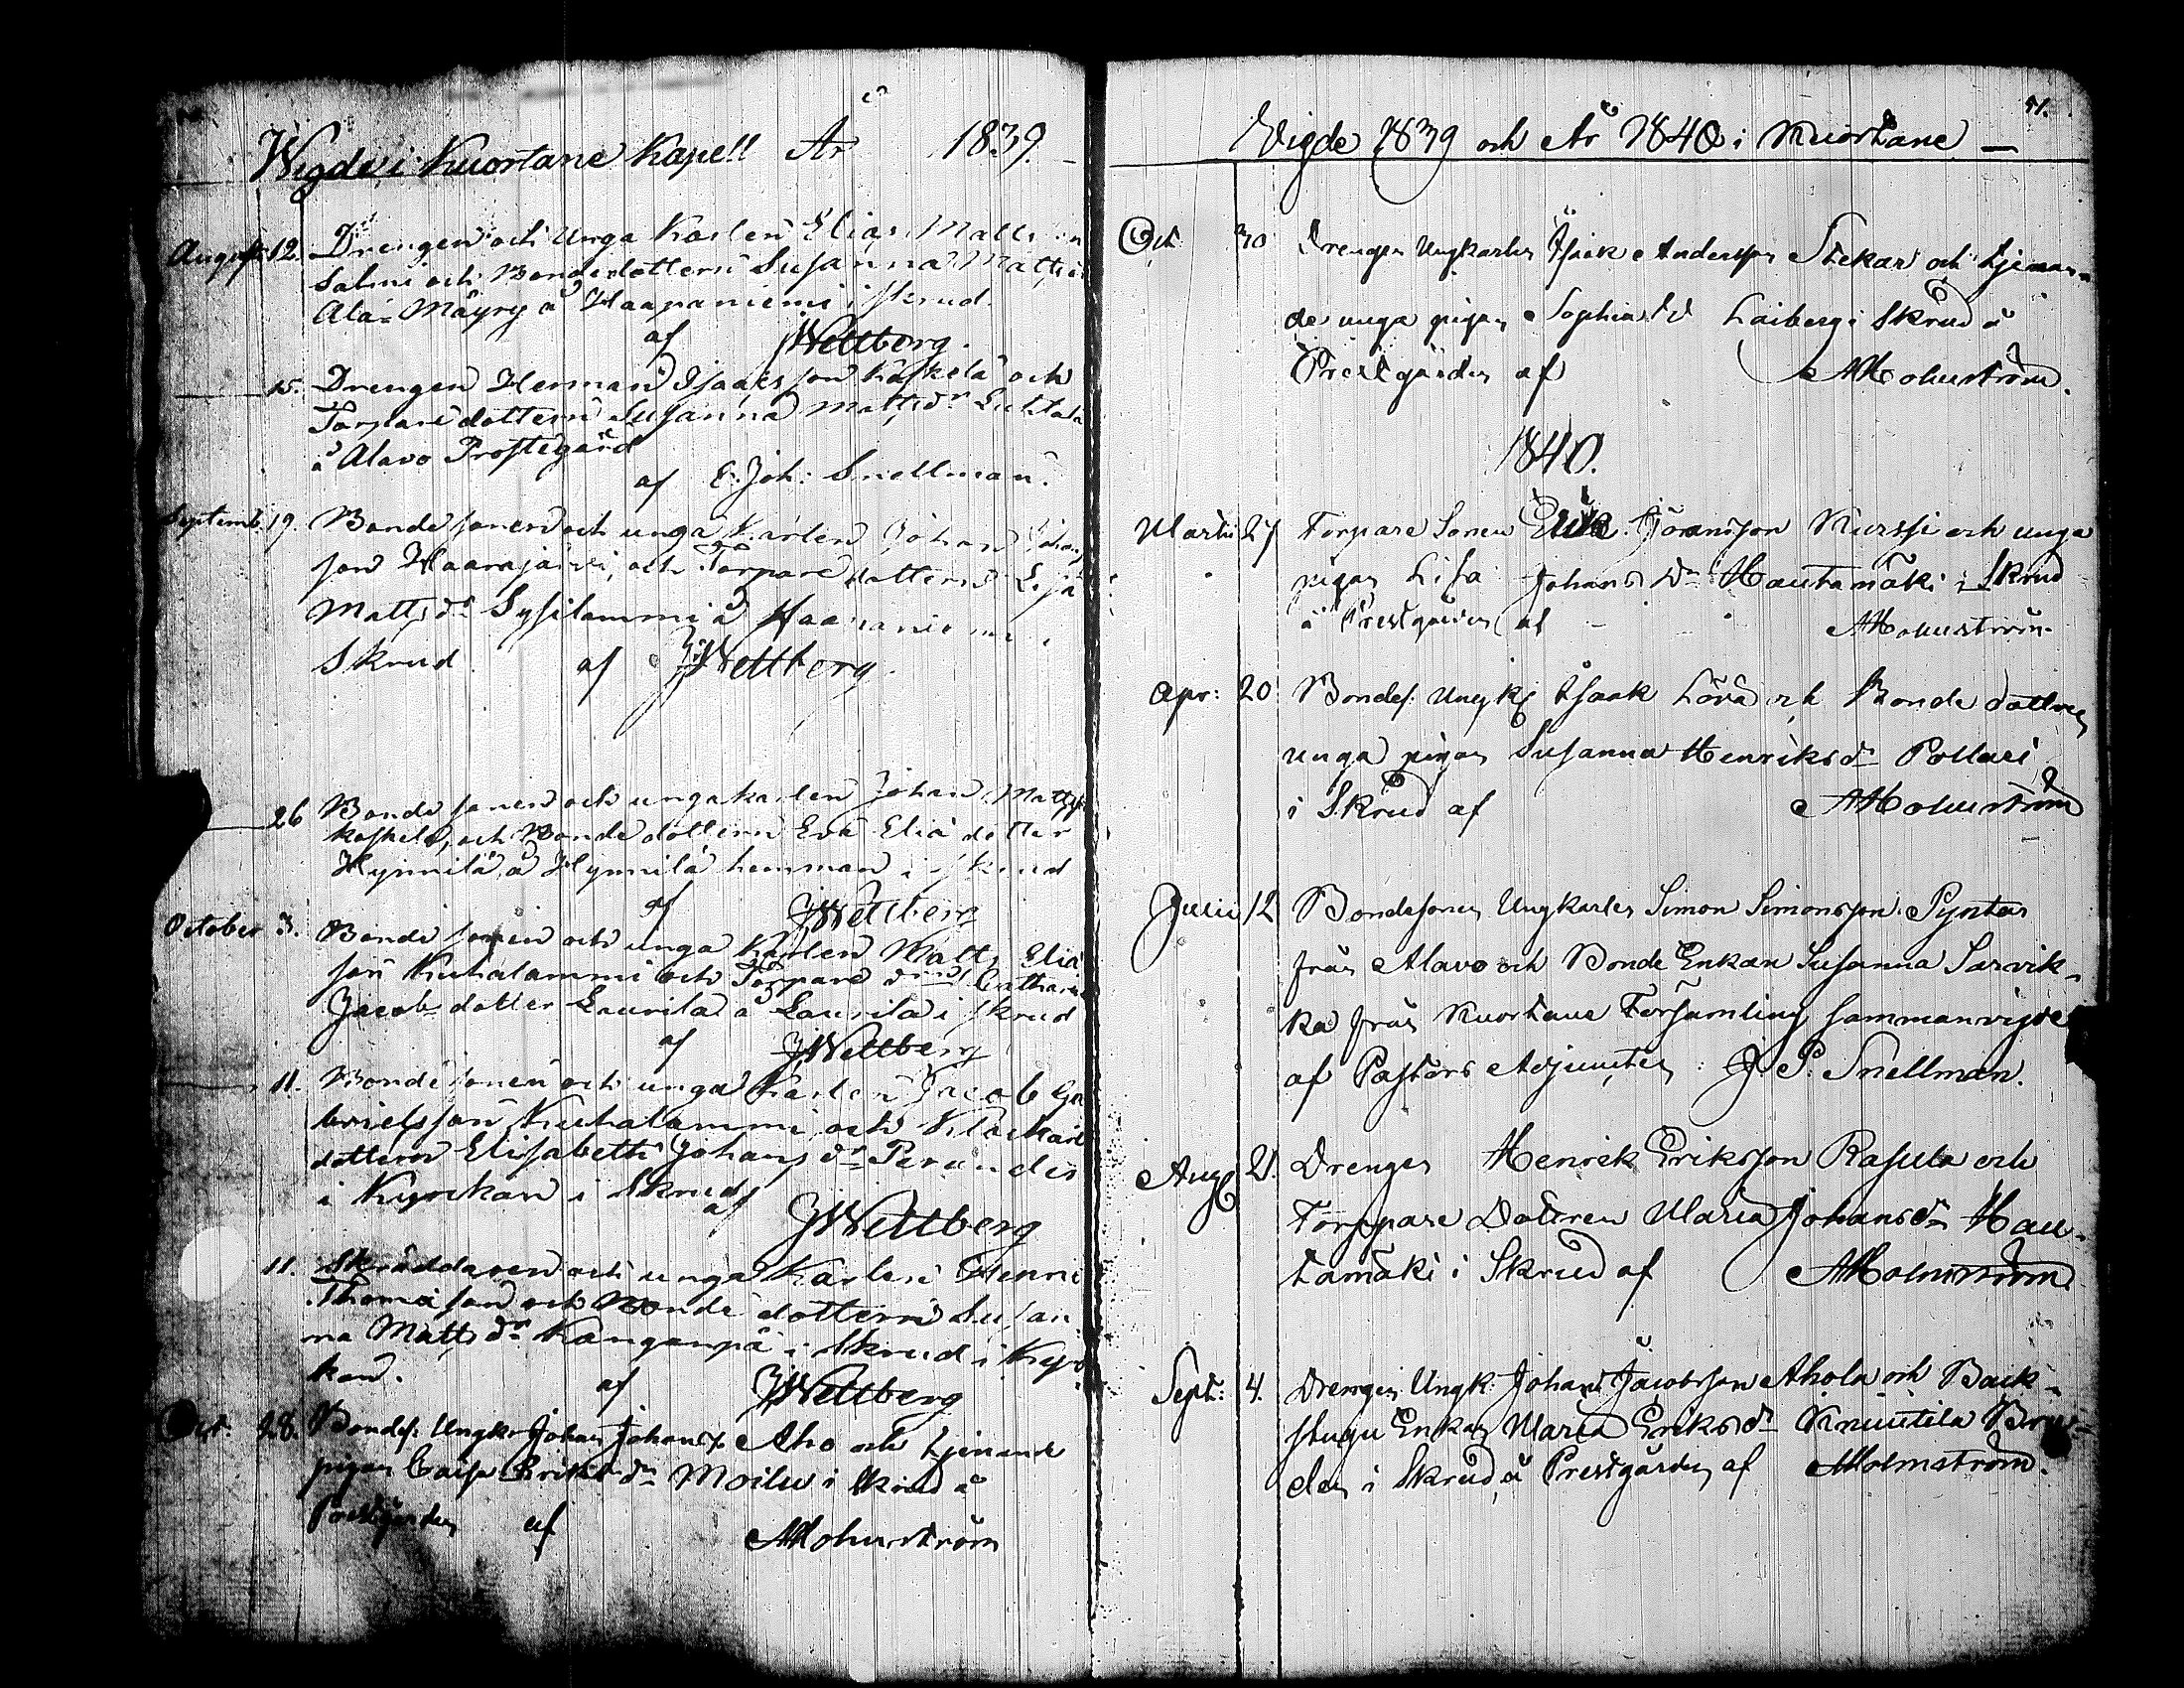 Wigde i Kuortane Kapell År 1839.
August 12. Drengen och Unga Karlen Elias Matts
Salmi och Bondedottern Susanna Matts
Ala-Mäyry å Haapaniemi i skrud
af JWettberg.
15. Drengen Herman Isaacsson Kaskela och
Torpare dottern Susanna Mattsdr
å Alavo Prostegård
af E. Joh: Snellman.
Septemb. 19. Bonde sonen och unga Karlen Johan Johans
son Haarajärvi, och Torpare dottern Lisa
Mattsdr Sysilammi å Haapaniemi i
Skrud af JWettberg.
26 Bonde sonen och unga karlen Johan Matts
Koskela, och Bonde dottern Eva Elia dotter
Hynnilä, å Hynnilä hemman i skrud
af JWettberg
October 3. Bonde sonen och unga Karlen Matts Elia
son Kuhalammi och Torpare Catharina
Jacobs dotter Laurila å Laurila i skrud
af JWettberg
11. Bonde sonen och unga Karlen Jacob Ga
brielsson Kuhalammi och Klockare
dottern Elisabeth Johans dr Perander
i Kyrckan i skrud
af JWettberg
11. Skräddaren och unga Karlen Henric
Thomasson och Bonde dottern Susan
na Matts dr Kanganpä i Skrud i Kyr
kan. af JWettberg
Oct. 28. Bondes. Ungk. Johan Johanss. Aho och tjenande
pigan Caisa Eriksdr Moilu i skrud å
Prestgården af AHolmström
51.
Vigde 1839 och År 1840 i Kuortane —
Oct. 30 Drengen Ungkarlen Isak Andersson Stekar och tjenan-
de unga pigan Sophia Laiberg i Skrud å
Prestgården af AHolmström.
1840.
Martii 27 Torpare Sonen Erik Göransson Kurssi och unga
pigan Lisa Johans Dr Hautamäki i Skrud
å Prestgården af AHolmström.
Apr: 20 Bondes. Ungk. Isaak Lövä och Bonde dottren
unga pigan Susanna Henriksdr Pollari
i Skrud af AHolmström
Julii 12 Bondesonen Ungkarlen Simon Simonsson Pyntar
från Alavo och Bonde Enkan Susanna Sarvik-
ka från Kuortane Församling sammanvigde
af Pastors Adjuncten J. P. Snellman.
Aug 21. Drengen Henrik Eriksson Rasula och
Torppare Dottren Maria Johansdr Hau-
tamäki i Skrud af AHolmström
Sept: 4. Drengen Ungk. Johan Jacobsson Ahola och Back-
stugu Enkan Maria Eriksdr Knuutila Bru-
den i Skrud, å Prestgården af AHolmström.